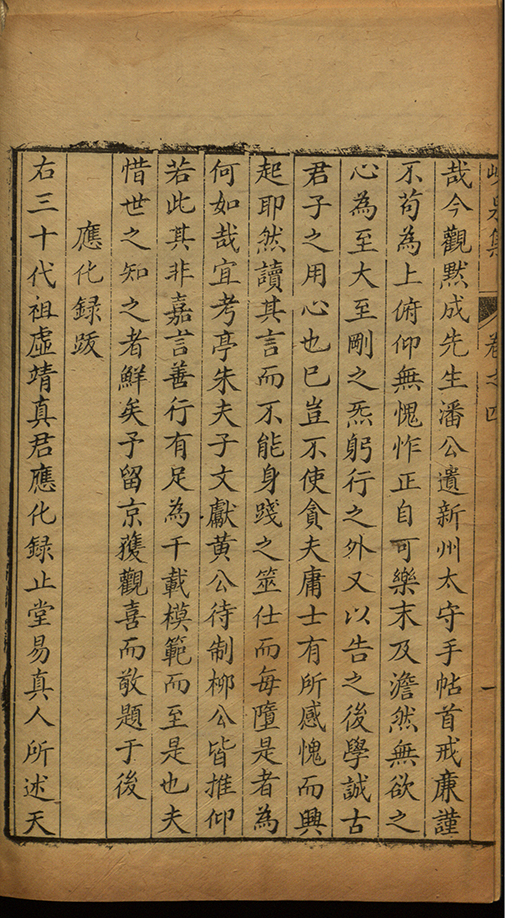 峴泉集 卷之四 一
哉今觀默成先生潘公遺新州太守手帖首戒廉謹
不苟為上俯仰無愧怍正自可樂末及澹然無欲之
心為至大至剛之炁躬行之外又以告之後學誠古
君子之用心也已豈不使貪夫庸士有所感愧而興
起耶然讀其言而不能身踐之筮仕而每墮是者為
何如哉宜考亭朱夫子文獻黃公待制柳公皆推仰
若此其非嘉言善行有足為千載模範而至是也夫
惜世之知之者鮮矣予留京獲觀喜而敬題于後
應化録跋
右三十代祖虛靖真君應化録止堂易真人所述天